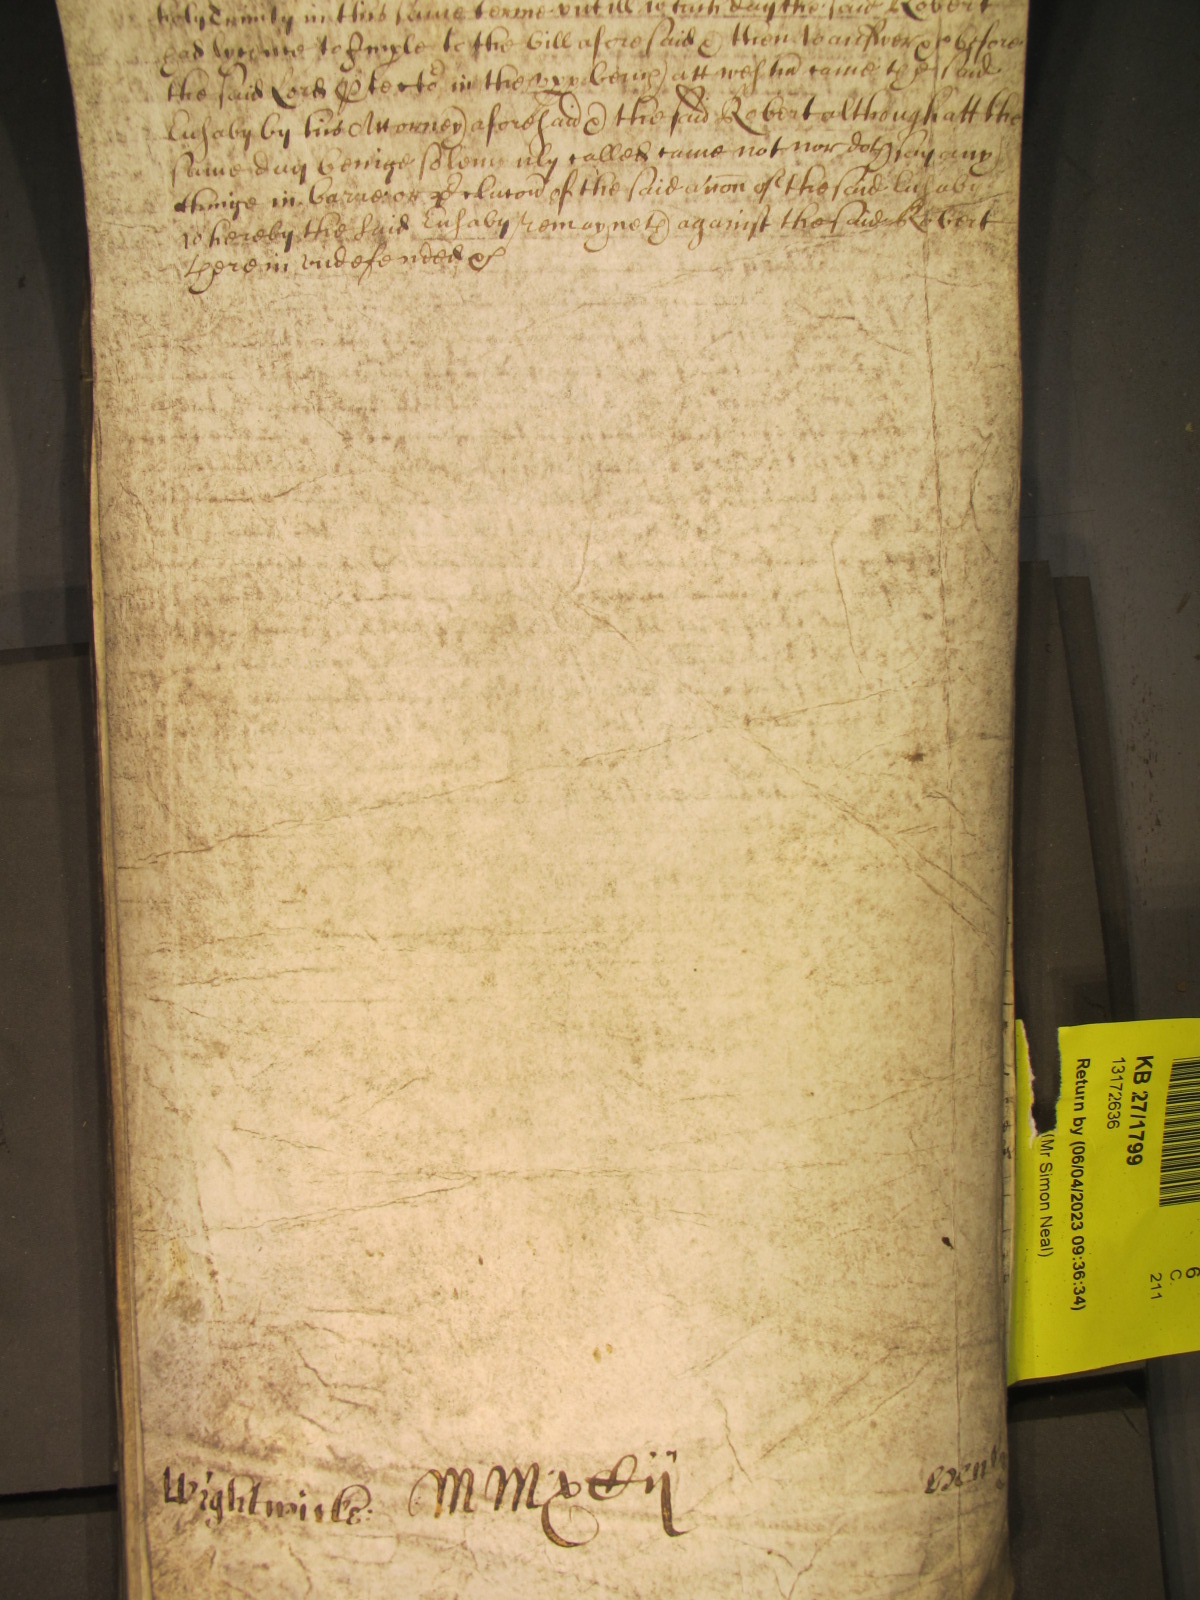 holy Trinity in this same terme untill which day the said Robert
had licence to Imple to the bill aforesaid & then to answer &c before
the said Lord Ptecto in the upper att westm came the said
Lushaby by his Attorney aforesaid & the said Robert although att the
same day beinge solemnly called came not nor doth say any
thinge in barre or of the said accon of the said Lushaby
whereby the said Lushaby remayneth against the said Robert
therein undefended &c
Wightwicke: MMxCij
KB 27/1799
13172636
Return by (06/04/2023 09:36:34)
(Mr Simon Neal)
6
C.
211